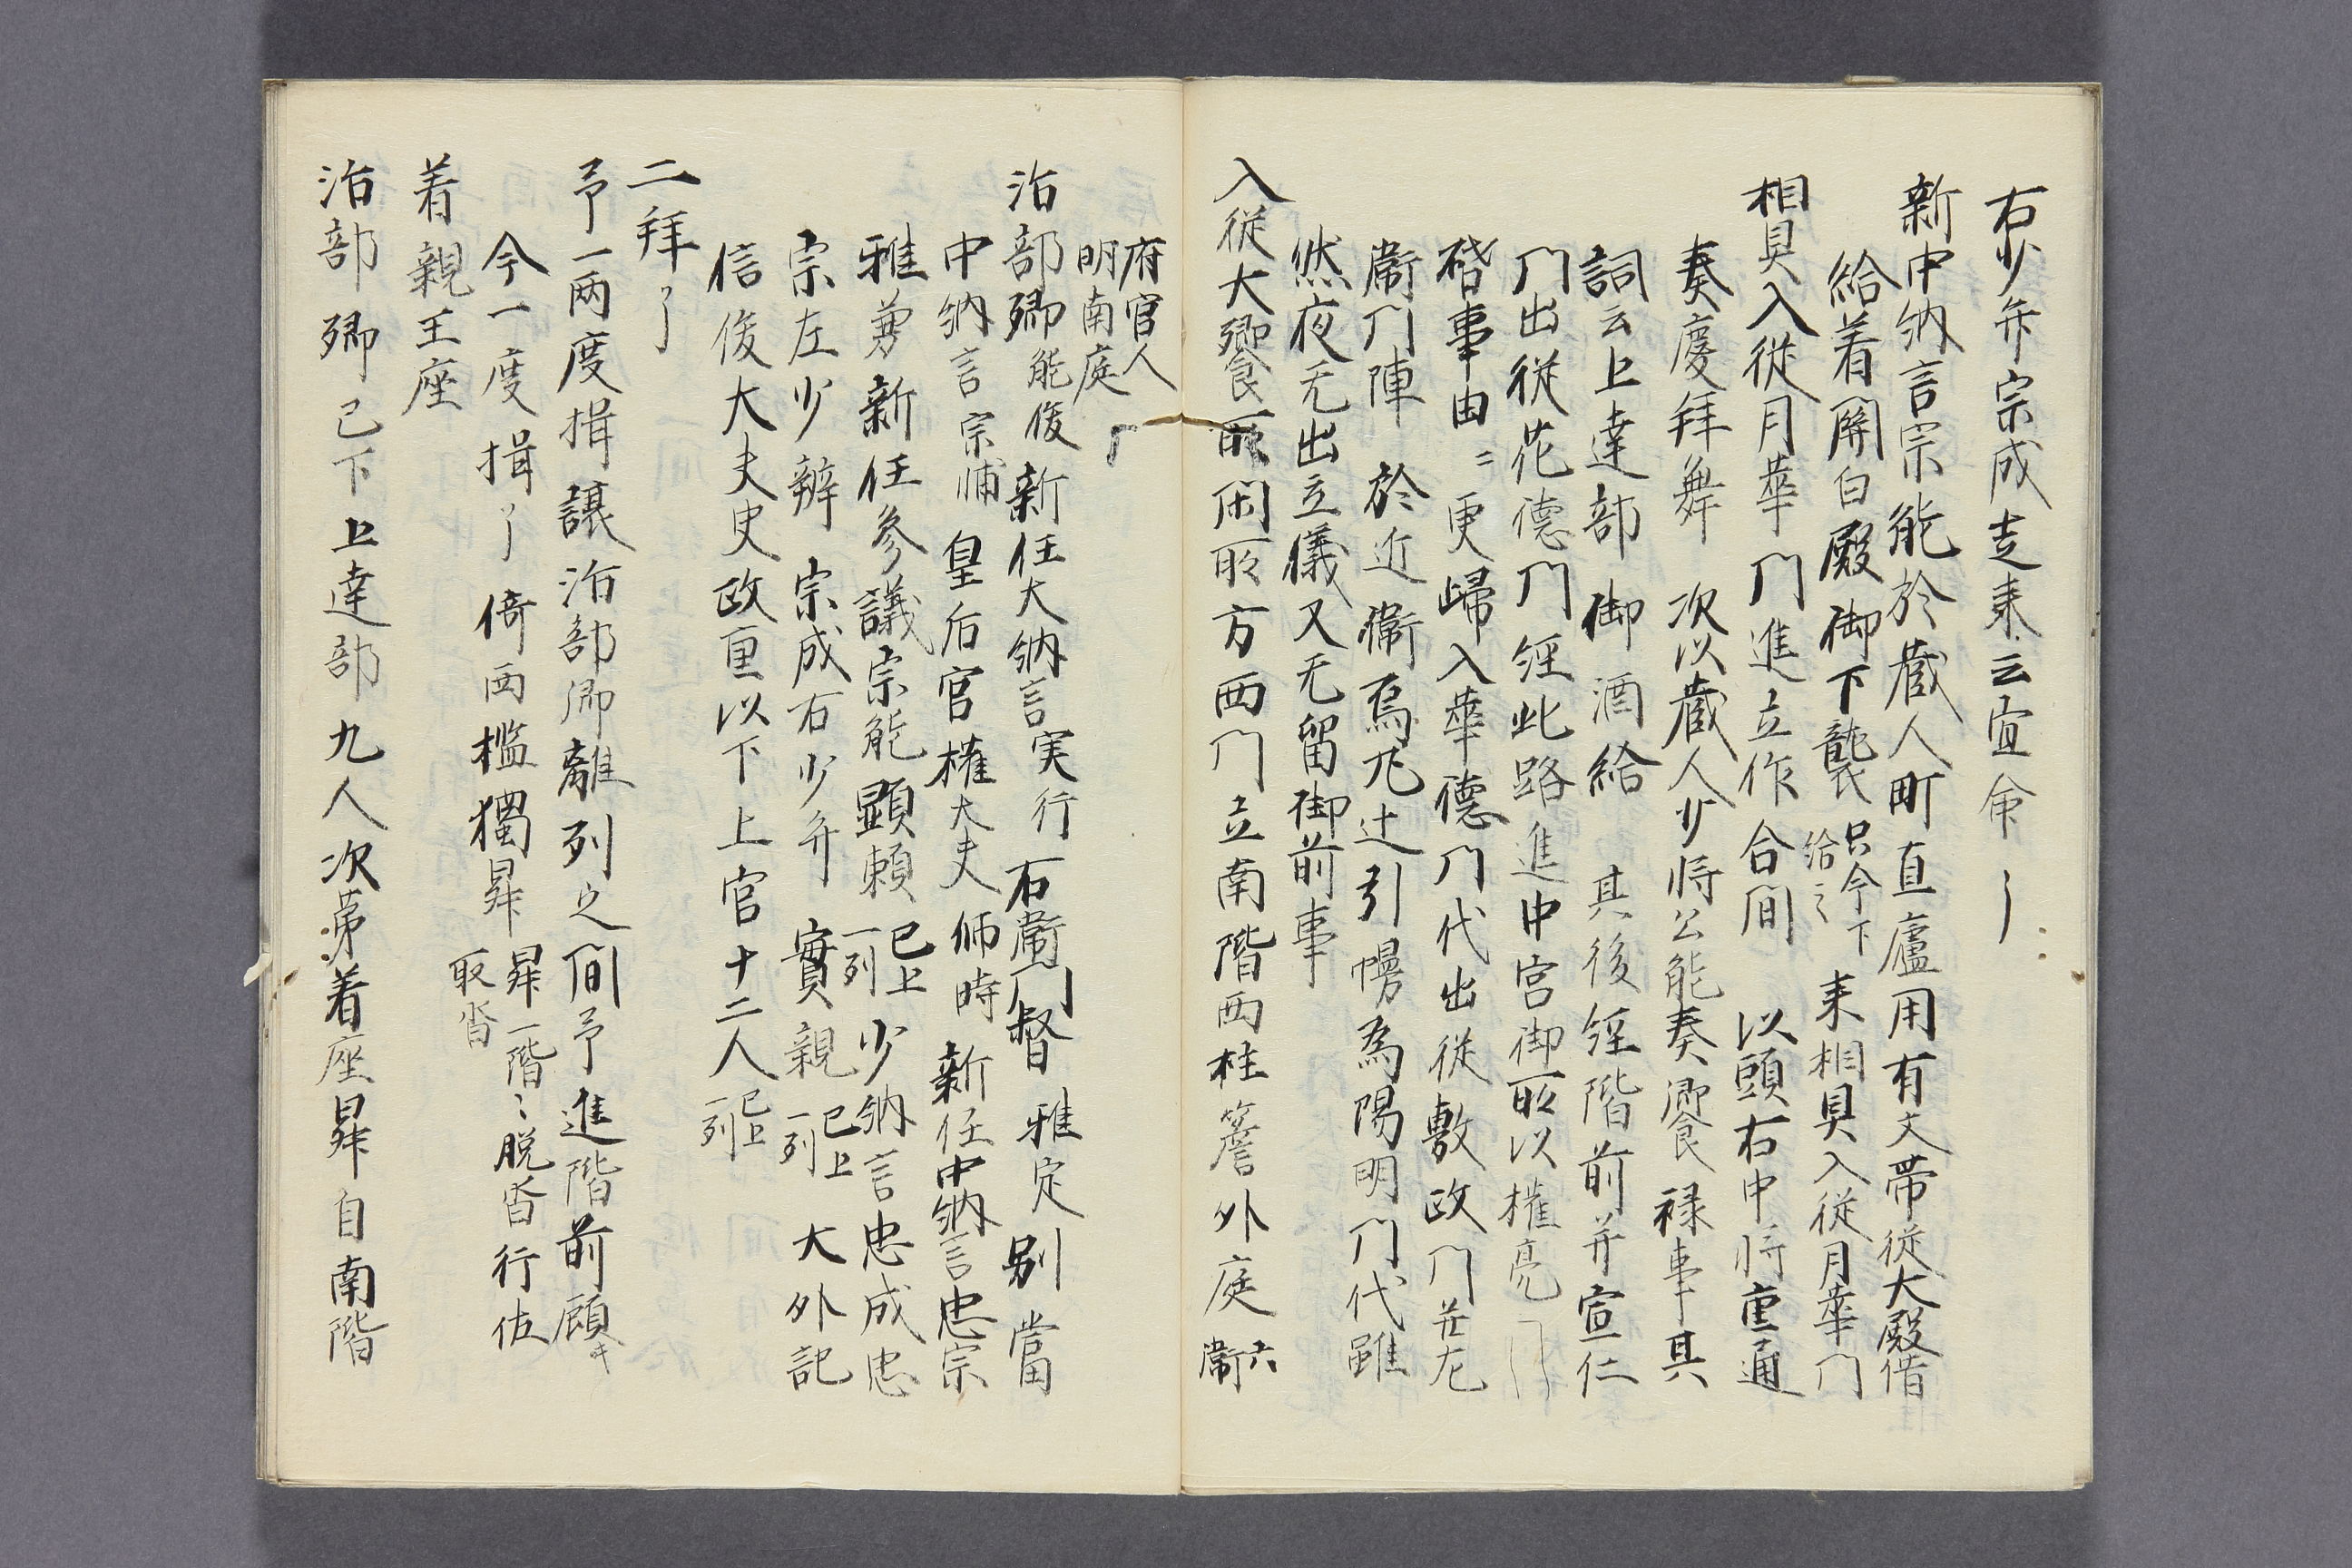 右少弁宗成走来云宣命了
新中納言宗能於蔵人町直廬用有文帯従大殿借
給着関白殿御下襲只今下給之来相具入従月華門
相具入従月華門進立作合間 以頭右中将重通
奏慶拝舞 次以蔵人少将公能奏饗禄事其
詞云上達部御酒給 其後経階前并宣仁
門出従花徳門経此路進中宮御所以権亮
啓事由〻更帰入華徳門代出従敷政門并左
衛門陣 於近衛烏丸辻引幔為陽明門代雖
然夜无出立儀又无留御前事
入従大饗所閑所方西門立南階西柱簷外庭六衛
府官人
明南庭
治部卿能俊新任大納言実行右衛門督雅定別当
中納言宗輔皇后宮権大夫師時新任中納言忠宗
雅兼新任参議宗能顕頼已上一列少納言忠成忠
宗左少辨宗成右少弁實親已上一列大外記
信俊大夫史政重以下上官十二人已上一列
二拝了
予一両度揖譲治部卿離列之間予進階前顧
今一度揖了倚西檻獨昇昇一階〻脱沓行佐取沓
着親王座
治部卿已下上達部九人次第着座昇自南階